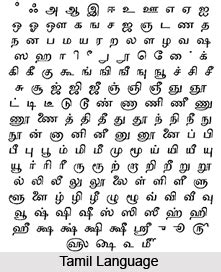 ஃ அ ஆ இ ஈ உ ஊ எ ஏ ஐ
ஒ ஓ ஔ க ங ச ஜ ஞ ட ண த
ந ன ப ம ய ர ற ல ள ழ வ ஷ
கி கீ கு கூ ங் ஙி ஙீ ஙு ஙூ ச் சி சீ
சு சூ ஜ் ஜி ஜீ
ட் டி டீ டு டூ ண் ணி ணீ ணு
ணூ த் தி தீ து தூ ந் நி நீ நு
நூ ன் னி னீ னு னூ ப் பி
பீ பு பூ ம் மி மீ மு மூ ய் யி யீ யு
யூ ர் ரி ரீ ரு ரூ ற் றி றீ று றூ
ல் லி லீ லு லூ ள் ளி ளீ ளு
ளூ ழ் ழி ழீ ழு ழூ வ் வி வீ வு
வூ ஷ் ஷி ஷீ ஸ் ஸி ஸீ ஹ் ஹி
ஹீ க்ஷ க்ஷ் க்ஷி க்ஷீ ஸ்ரீ
Tamil Language